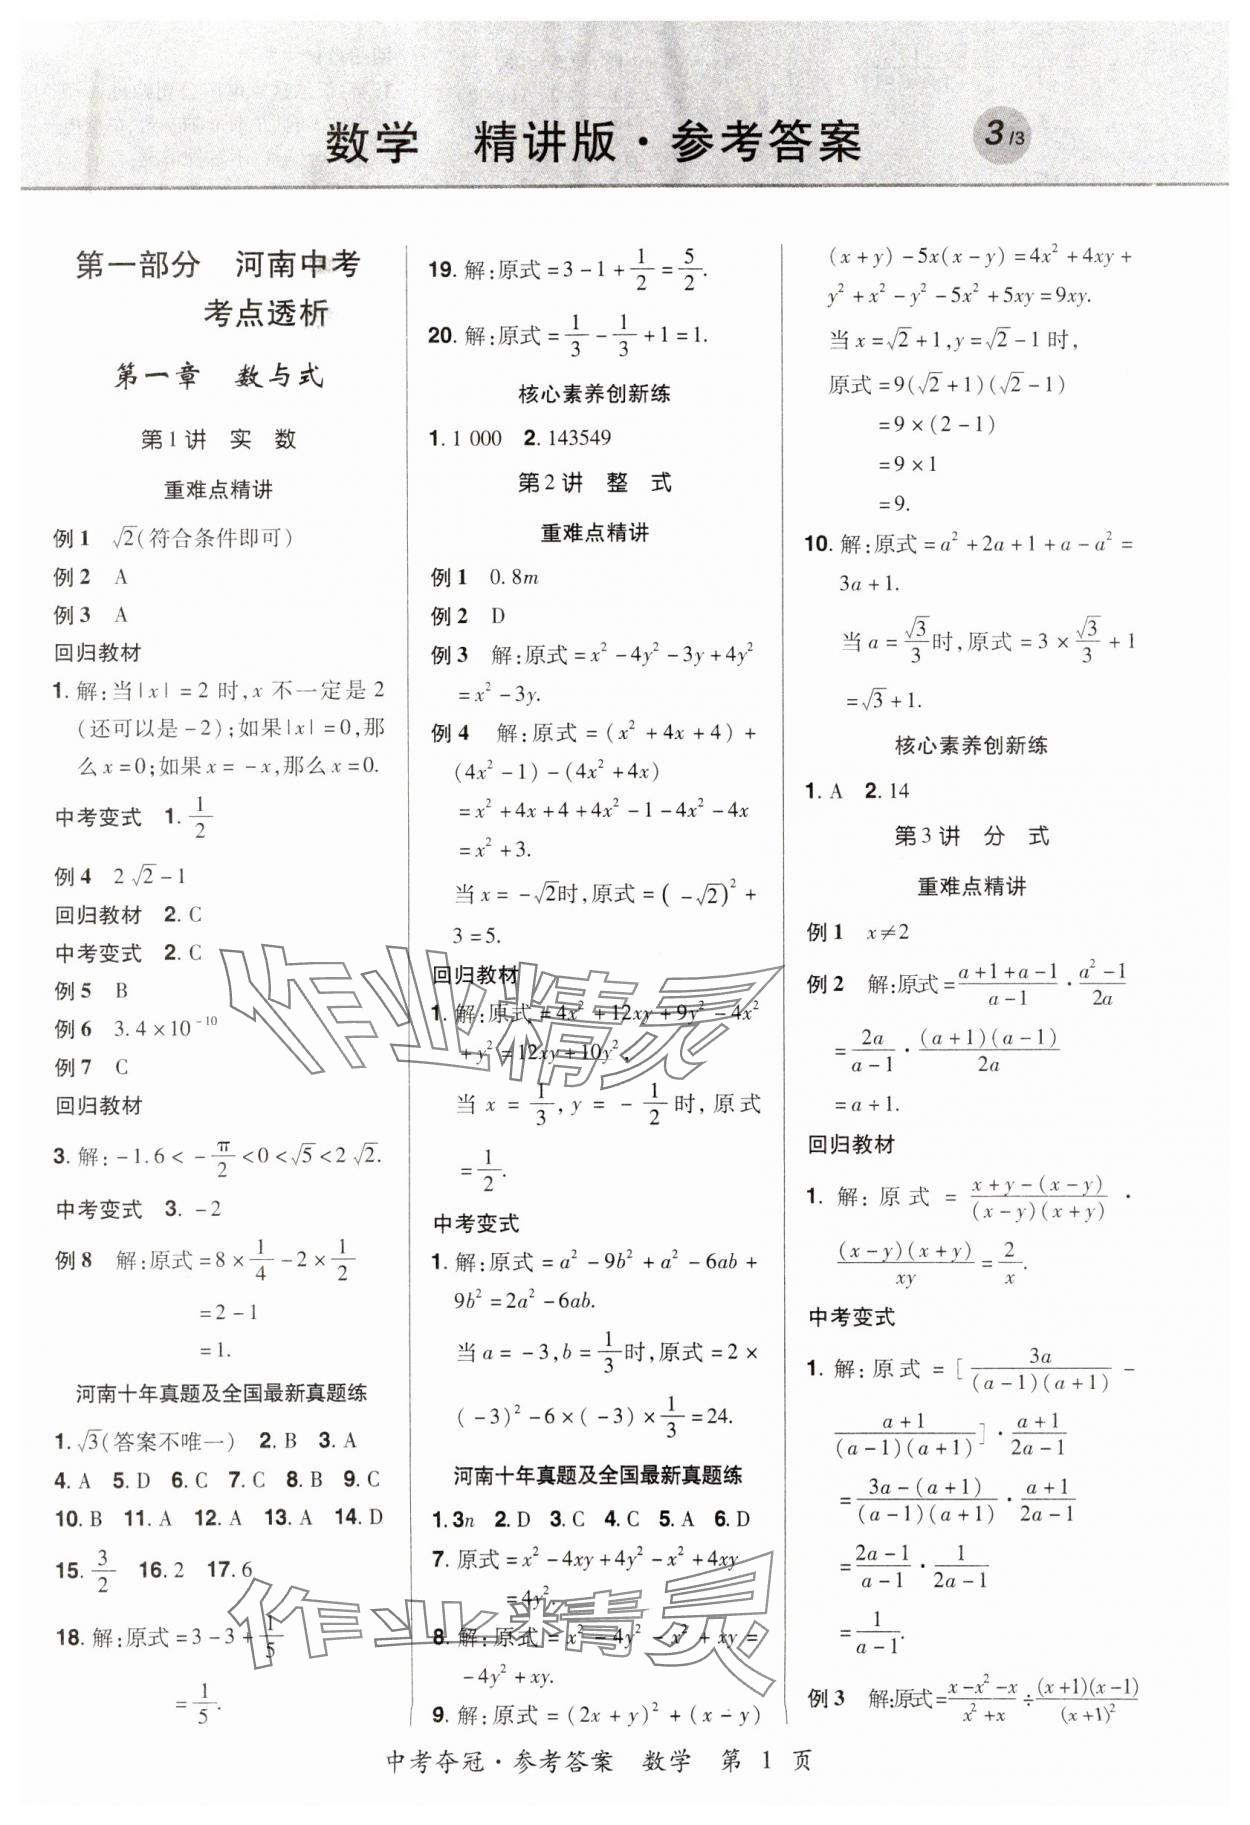 数学 精讲版·参考答案 3/3
第一部分 河南中考
考点透析
第一章 数与式
第1讲 实 数
重难点精讲
例1 √2(符合条件即可)
例2 A
例3 A
回归教材
1. 解:当|x|=2时,x不一定是2
(还可以是-2);如果|x|=0,那
么x=0;如果x=-x,那么x=0.
中考变式 1. 1/2
例4 2√2-1
回归教材 2. C
中考变式 2. C
例5 B
例6 3.4×10⁻¹⁰
例7 C
回归教材
3. 解:-1.6<-π/2<0<√5<2√2.
中考变式 3. -2
例8 解:原式=8×1/4-2×1/2
=2-1
=1.
河南十年真题及全国最新真题练
1. √3(答案不唯一) 2. B 3. A
4. A 5. D 6. C 7. C 8. B 9. C
10. B 11. A 12. A 13. A 14. D
15. 3/2 16. 2 17. 6
18. 解:原式=3-3+1/5
=1/5.
19. 解:原式=3-1+1/2=5/2.
20. 解:原式=1/3-1/3+1=1.
核心素养创新练
1. 1 000 2. 143549
第2讲 整 式
重难点精讲
例1 0.8m
例2 D
例3 解:原式=x²-4y²-3y+4y²
=x²-3y.
例4 解:原式=(x²+4x+4)+
(4x²-1)-(4x²+4x)
=x²+4x+4+4x²-1-4x²-4x
=x²+3.
当x=-√2时,原式=(-√2)²+
3=5.
回归教材
1. 解:原式=4x²+12xy+9y²-4x²
+y²=12xy+10y²,
当x=1/3,y=-1/2时,原式
=1/2.
中考变式
1. 解:原式=a²-9b²+a²-6ab+
9b²=2a²-6ab.
当a=-3,b=1/3时,原式=2×
(-3)²-6×(-3)×1/3=24.
河南十年真题及全国最新真题练
1. 3n 2. D 3. C 4. C 5. A 6. D
7. 原式=x²-4xy+4y²-x²+4xy
=4y².
8. 解:原式=x²-4y²-x²+xy=
-4y²+xy.
9. 解:原式=(2x+y)²+(x-y)
(x+y)-5x(x-y)=4x²+4xy+
y²+x²-y²-5x²+5xy=9xy.
当x=√2+1,y=√2-1时,
原式=9(√2+1)(√2-1)
=9×(2-1)
=9×1
=9.
10. 解:原式=a²+2a+1+a-a²=
3a+1.
当a=√3/3时,原式=3×√3/3+1
=√3+1.
核心素养创新练
1. A 2. 14
第3讲 分 式
重难点精讲
例1 x≠2
例2 解:原式=(a+1+a-1)/(a-1)·(a²-1)/2a
=2a/(a-1)·(a+1)(a-1)/2a
=a+1.
回归教材
1. 解:原式=[x+y-(x-y)]/[(x-y)(x+y)]·
(x-y)(x+y)/xy=2/x.
中考变式
1. 解:原式=[3a/(a-1)(a+1)-
(a+1)/(a-1)(a+1)]·(a+1)/(2a-1)
=[3a-(a+1)]/[(a-1)(a+1)]·(a+1)/(2a-1)
=(2a-1)/(a-1)·1/(2a-1)
=1/(a-1).
例3 解:原式=(x-x²-x)/(x²+x)÷(x+1)(x-1)/(x+1)²
中考夺冠·参考答案 数学 第 1 页
作业精灵
作业精灵